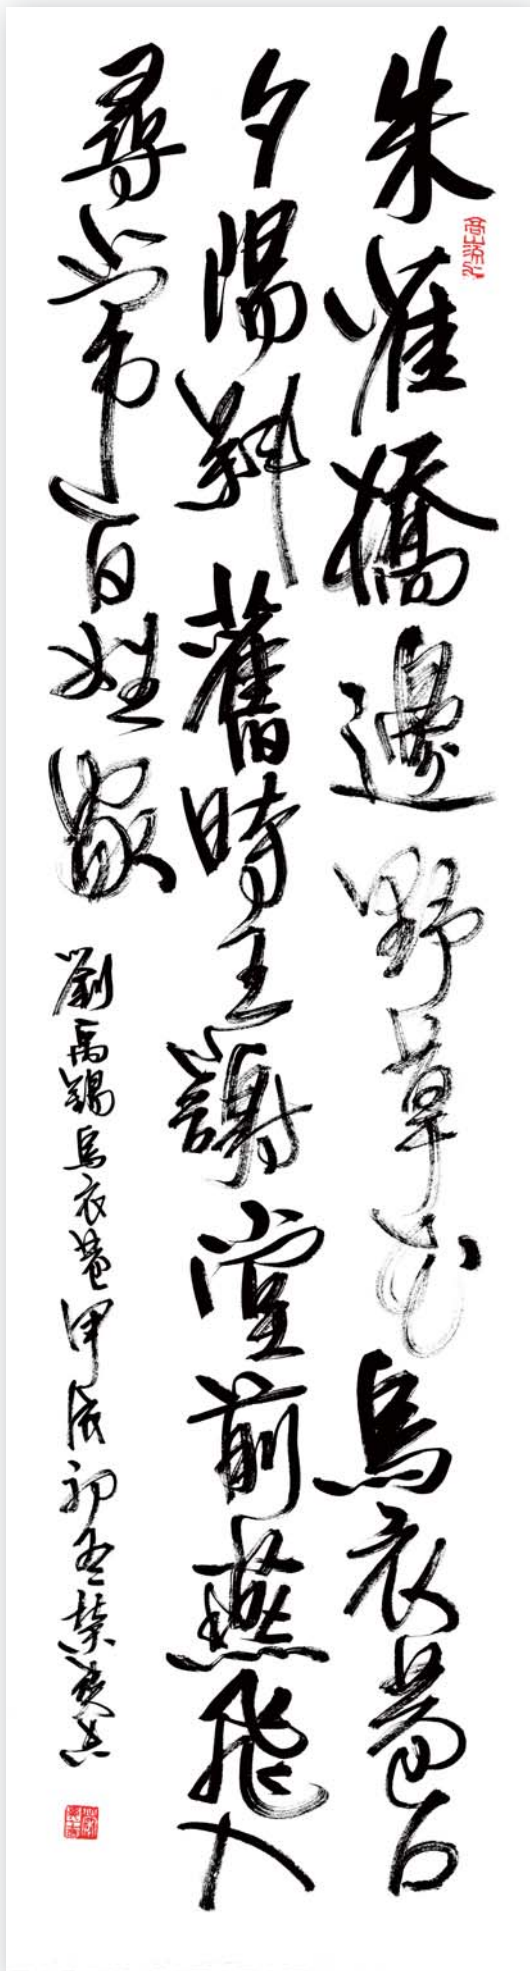 朱雀橋邊野草花烏衣巷口
夕陽斜舊時王謝堂前燕飛入
尋常百姓家
劉禹錫烏衣巷甲戌初冬
高山流水